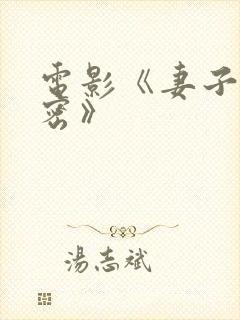 電影《妻子
密》
湯志斌